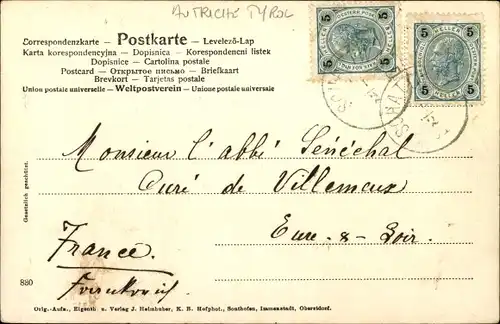 AUTRICHE TYROL
Correspondenzkarte – Postkarte – Levelező-Lap
Karta korespondencyjna – Dopisnica – Korespondenčni listek
Dopisnice – Cartolina postale
Postcard – Открытое письмо – Briefkaart
Brevkort – Tarjetas postale
Union postale universelle – Weltpostverein – Unione postale universale
5 5
HELLER
5 5
5 5
HELLER
5 5
Monsieur l'abbé Sénéchal
Curé de Villemeux
Eure-&-Loir.
France.
Frankreich
Gesetzlich geschützt.
880
Orig.-Aufn., Eigenth. u. Verlag J. Heimhuber, K. B. Hofphot., Sonthofen, Immenstadt, Oberstdorf.